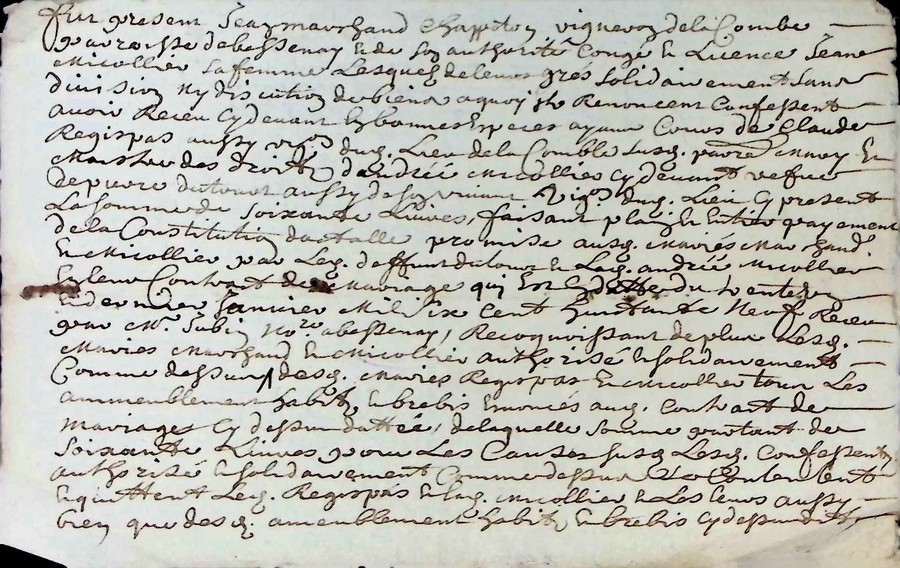 fut present Jean marchand chappoton vigneron de la Combe
parroisse de bessenay & de son authorité Congé & Licence Jeane
Micollier sa femme Lesquels de leurs grés solidairement sans
division ny discution de biens a quoy ils Renoncent Confessent
avoir Receu cy devant En bonnes Especes ayant Cours de Claude
Regispas aussy vig.on dud. Lieu de la Comble susd. parre. mary Et
Maistre des droits d'andrée micollier cy devant vefve
de pierre dutour aussy de son vivant vig.on dud. Lieu Cy present
La somme de Soixante Livres, faisant plain & Entier payement
de la Constitution dotalle promise ausd. Mariés Marchand
& Micollier par Led. deffunt dutour & Lad. andrée Micollier
En leur Contract de Mariage qui Est En datte du
& dernier Janvier Mil six Cent huitante Neuf Receu
par Me. Jubin No.re a bessenay, Recoquoissant de plus Lesd.
Mariés Marchand & Micollier authorisé & solidairement
Comme dessus desd. Mariés Regispas & Micollier tous Les
ammeublement habits, & brebis Enoncés aud. Contract de
Mariages Cy dessus dattée, de laquelle somme partant de
Soixante Livres pour Les Causes susd. Lesd. Confessent,
authorisé & solidairement Comme dessus se Contentent
& quittent Led. Regispas & Lad. Micollier & Les leurs aussy
bien que desd. ameublement habits & brebis cy dessus dits